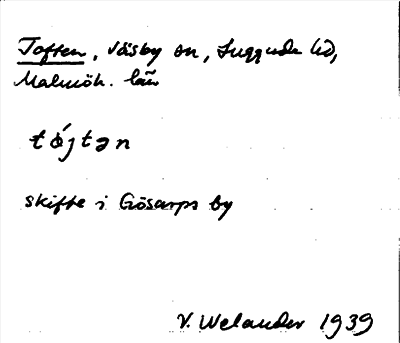 Toften, Väsby sn, Luggude hd,
Malmöh. län
tǿjtən
skifte i Gösarps by
V. Welander 1939